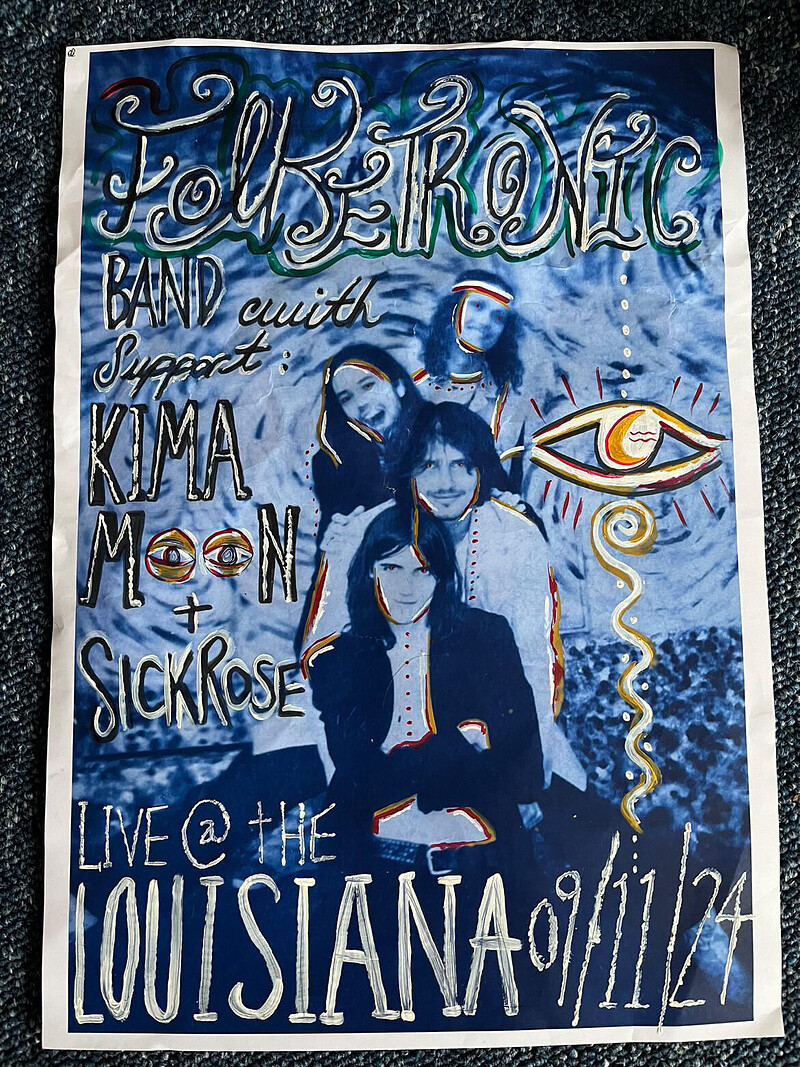 FolKETRONIC
BAND with
Support:
KIMA
MOON
+
SICKROSE
LIVE @ tHE
LOUISIANA 09/11/24